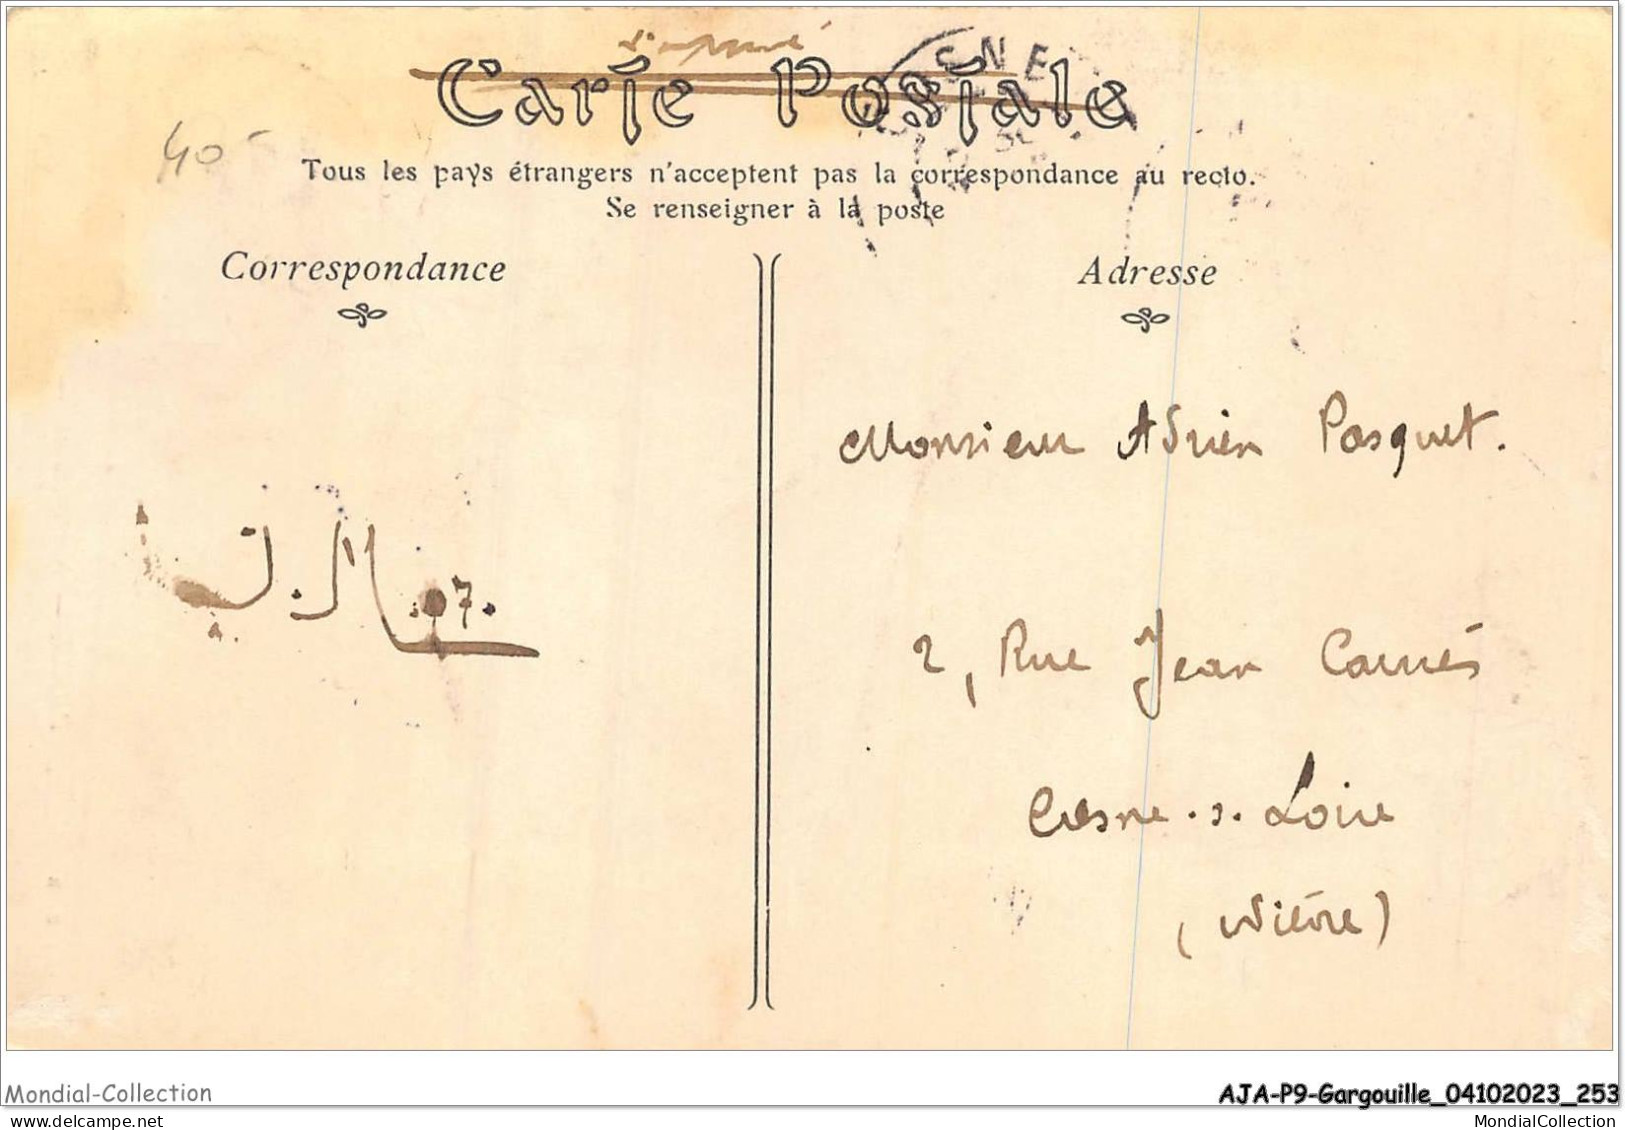 Imprimé
Carte Postale
40-
Tous les pays étrangers n'acceptent pas la correspondance au recto.
Se renseigner à la poste
Correspondance
Adresse
Monsieur Adrien Pasquet.
J. M. 07.
2, Rue Jean Carriès
Cosne. s. Loire
(Nièvre)
Mondial-Collection
AJA-P9-Gargouille_04102023_253
MondialCollection